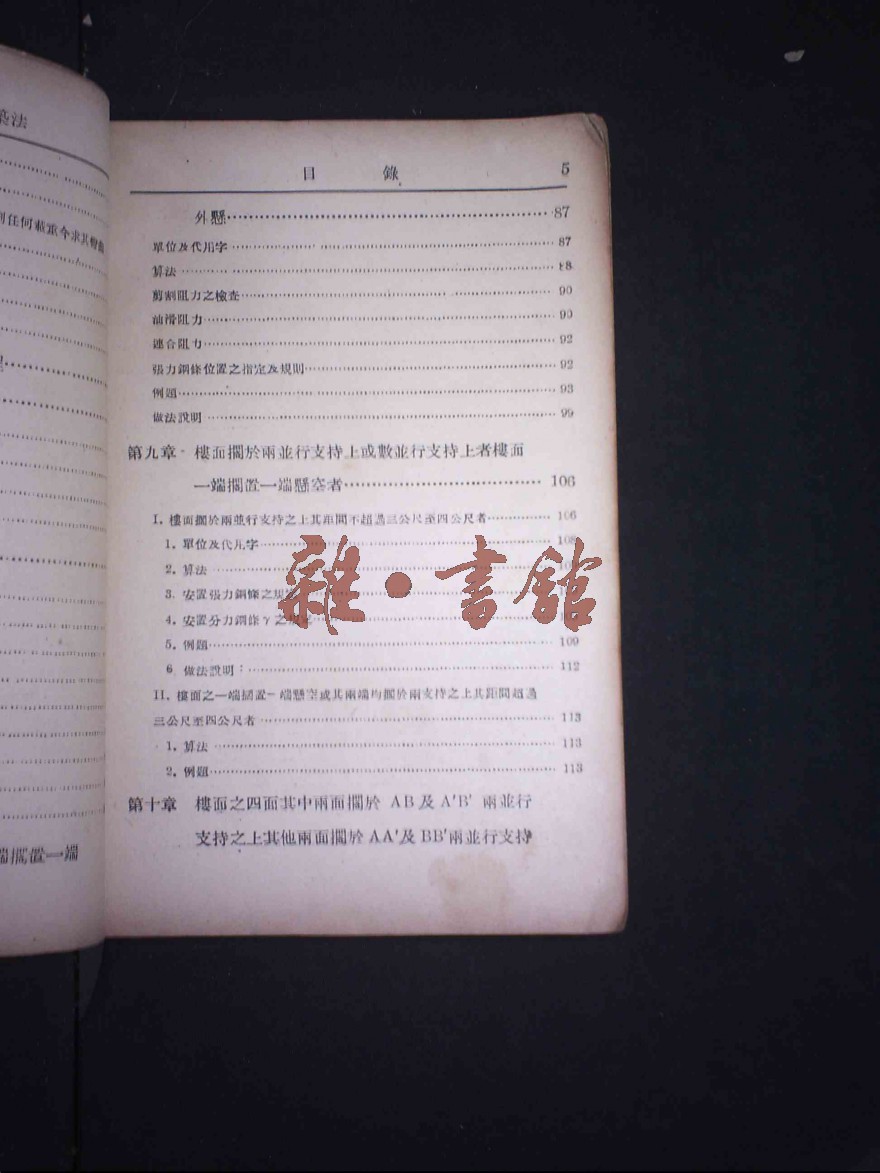 築法
目 錄 5
外懸 87
單位及代用字 87
算法 88
剪割阻力之檢查 90
油滑阻力 90
連合阻力 92
張力鋼條位置之指定及規則 92
例題 93
做法說明 99
第九章 樓面擱於兩並行支持上或數並行支持上者樓面
一端擱置一端懸空者 106
I. 樓面擱於兩並行支持之上其距間不超過三公尺至四公尺者 106
1. 單位及代用字 108
2. 算法
3. 安置張力鋼條之規定
4. 安置分力鋼條 γ 之規定
5. 例題 109
6 做法說明: 112
II. 樓面之一端擱置一端懸空或其兩端均擱於兩支持之上其距間超過
三公尺至四公尺者 113
1. 算法 113
2. 例題 113
第十章 樓面之四面其中兩面擱於 AB 及 A'B' 兩並行
支持之上其他兩面擱於 AA'及 BB'兩並行支持
端擱置一端
雜·書館